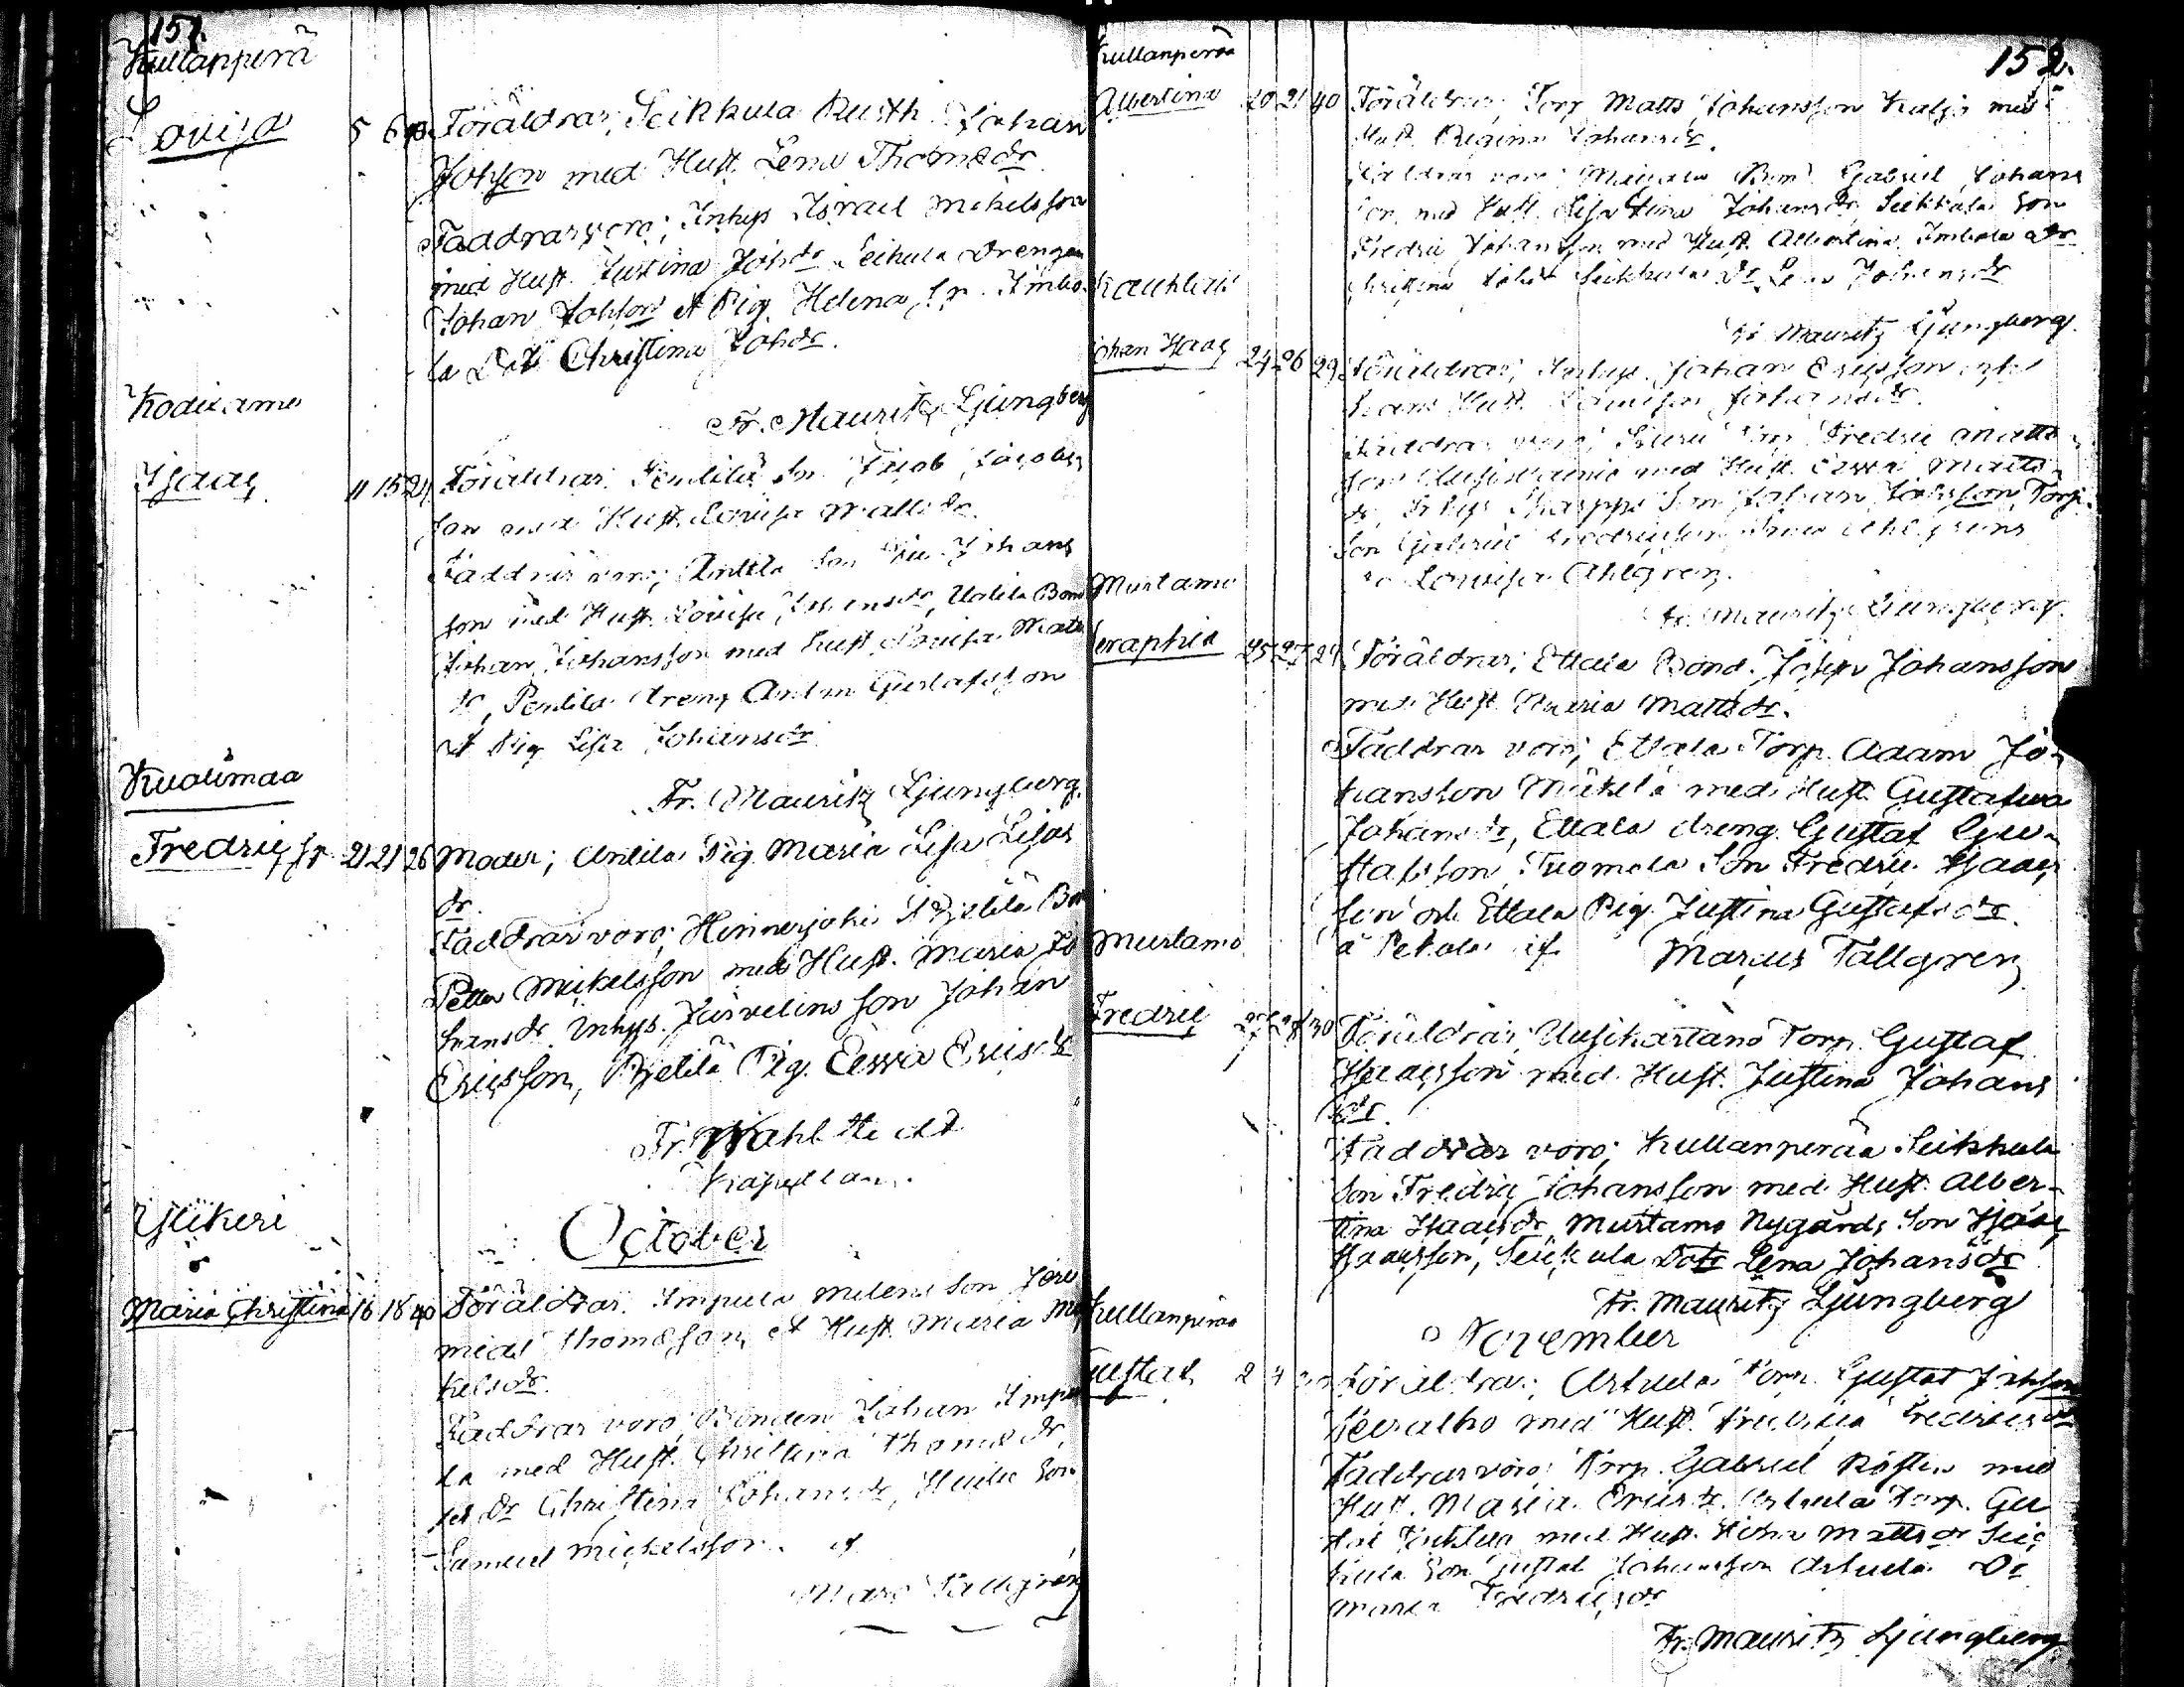 151.
Kullanperä
Lovisa 5 6 40 Föräldrar; Seikkula Rusth. Johan
Johsson med Hust. Lena Thomsdr
Faddrar voro; Inhys Israel Mikelsson
med Hust. Justina Johdr Seikula Drengen
Johan Johsson et Pig. Helena Sp. Imbo-
la Dotr Christina Johdr.
Fr. Mauritz Ljungberg
Kodixamo
Isaac 11 15 24 Föräldrar; Penttilä Son Jacob Jacobs
son med Hust. Lovisa Mattsdr.
Faddrar voro; Anttila Son Johans
son med Hust. Lovisa Johansdr, Uotila Bond
Johan Johansson med Hust. Lovisa Matts
dr, Penttilä dreng Anton Gustafsson
et Pig Lisa Johansdr
Fr. Mauritz Ljungberg.
Kuolimaa
Fredric sp. 21 21 26 Moder; Anttila Pig. Maria Lisa Lisas
dr.
Faddrar voro; Hinnerjoki Bjelilä Bon
Petter Mickelsson med Hust. Maria Jo
hansdr. Inhys. Järvelins Son Johan
Ericsson, Bjelilä Pig. Eewa Ericsdr
Fr. Wahlstedt
Kapellan.
October
Ylikeri
Maria Christina 16 18 40 Föräldrar. Impula Milens Son Jere
mias Thomsson et Hust. Maria Mi
kelsdr.
Faddrar voro; Bonden Johan Impu
la med Hust. Christina Thomsdr,
Dr Christina Johansdr, Son
Samuel Mickelsson. af
Marc. Tallgren
152.
Kullanperää
Albertina 20 21 40 Föräldrar; Torp Matts Johansson med
Hust. Regina Johansdr.
Faddrar voro; Bond Gabriel Johans
son med Hust. Lisa Stina Johansdr, Seikkula Son
Fredric Johansson med Hust. Albertina, Imbola Dr
Christina Johdr Seikkula Dr Lena Johansdr
Fr Mauritz Ljungberg.
Kaukola
Johan Isaac 24 26 29 Föräldrar; Inhys. Johan Ericsson och
hans Hust. Lovisa Johansdr.
Faddrar voro; Fredric Matts
son med Hust. Eewa Matts
dr, Inhys Son Johan Johsson, Torp.
Son Gabriel Fredricsson
Lovisa Ahlgren.
Fr. Mauritz Ljungberg.
Murtamo
Seraphia 25 27 24 Föräldrar; Ettala Bond. Josep Johansson
med Hust. Maria Mattsdr.
Faddrar voro; Ettala Torp. Adam Jo-
hansson Mäkelä med Hust. Gustafva
Johansdr, Ettala dreng Gustaf Gu-
stafsson, Tuomola Son Fredric Isaac
son och Ettala Pig. Justina Gustafsdr.
å Pekola af Marcus Tallgren
Murtamo
Fredric 27 28 30 Föräldrar; Uusikartano Torp. Gustaf
Isaacsson med Hust. Justina Johans
dr.
Faddrar voro; Kullanperää Seikkula
Son Fredric Johansson med Hust. Alber-
tina Isaacsdr, Murtamo Nygårds Son Isaac
Isaacsson, Seickula Dotr Lena Johansdr
Fr. Mauritz Ljungberg
November
Kullanperää
Gustaf 2 4 Föräldrar; Askula Torp. Gustaf Johsson
med Hust. Fredrica Fredricsdr
Faddrar voro; Torp. Gabriel med
Hust. Maria Ericsdr, Askula Torp. Gu
staf med Hust. Mattsdr Sei
kula Son Gustaf Johansson Askula Dr
Maria Fredricsdr
Fr. Mauritz Ljungberg